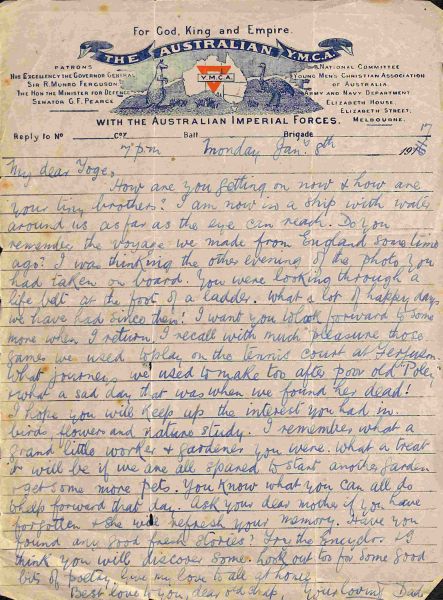 For God, King and Empire.
THE AUSTRALIAN Y.M.C.A.
PATRONS
HIS EXCELLENCY THE GOVERNOR GENERAL
SIR R. MUNRO FERGUSON
THE HON THE MINISTER FOR DEFENCE
SENATOR G. F. PEARCE
Y.M.C.A.
NATIONAL COMMITTEE
YOUNG MEN'S CHRISTIAN ASSOCIATION
OF AUSTRALIA
ARMY AND NAVY DEPARTMENT
ELIZABETH HOUSE,
ELIZABETH STREET,
MELBOURNE.
WITH THE AUSTRALIAN IMPERIAL FORCES.
Reply to No Coy Batt Brigade
7pm Monday Jany 8th 1917
My dear
How are you getting on now & how are
your tiny brothers? I am now in a ship with water
around us as far as the eye can reach. Do you
remember the voyage we made from England some time
ago? I was thinking the other evening of the photo you
had taken on board. You were looking through a
life belt at the foot of a ladder. What a lot of happy days
we have had since then! I want you to look forward to some
more when I return. I recall with much pleasure those
games we used to play on the tennis court at
What journeys we used to make too after poor old "Poley"
& what a sad day that was when we found her dead!
I hope you will keep up the interest you had in
birds, flowers and nature study. I remember what a
grand little worker & gardener you were. What a treat
it will be if we are all spared to start another garden
& get some more pets. You know what you can all do
to help forward that day. Ask your dear mother if you have
forgotten & she will refresh your memory. Have you
found any good fresh stories? Try the Encyclo. & I
think you will discover some. Look out too for some good
bits of poetry. Give my love to all at home
Best love to you, dear old chap. Your loving Dad